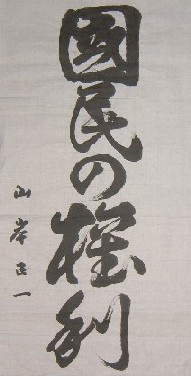 國民の権利
山岸正一